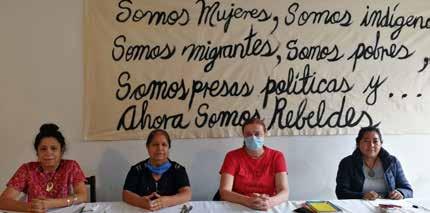 Somos Mujeres, Somos indígenas
Somos migrantes, Somos pobres,
Somos presas políticas y...
Ahora Somos Rebeldes